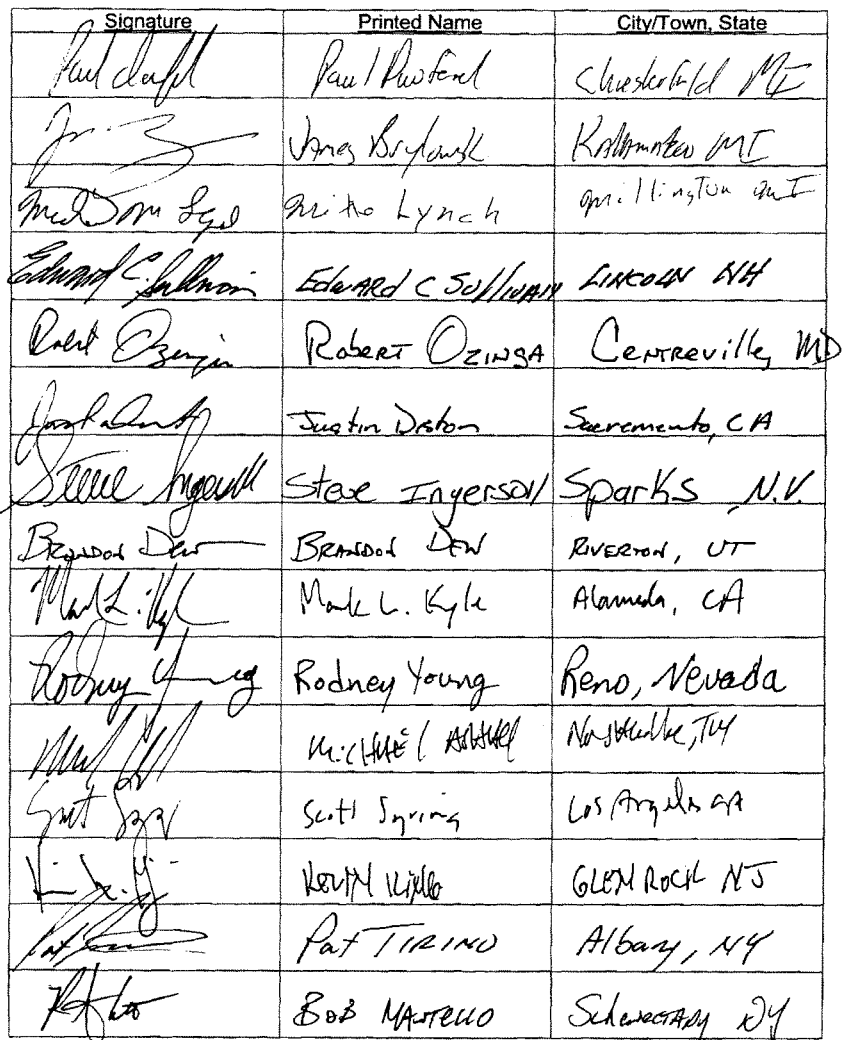 Signature Printed Name City/Town, State
Paul Chesterfield MI
James Kalamazoo MI
Mike Lynch Millington MI
Edward C. Sullivan Edward C Sullivan Lincoln NH
Robert Ozinga Robert Ozinga Centreville, MD
Justin Diston Sacramento, CA
Steve Ingersoll Steve Ingersoll Sparks N.V.
Brandon Dew Brandon Dew Riverton, UT
Mark L. Kyle Mark L. Kyle Alameda, CA
Rodney Young Rodney Young Reno, Nevada
Michael Nashville, TN
Scott Scott Syring Los Angeles CA
Kevin Glen Rock NJ
Pat Pat Tirino Albany, NY
Bob Mantello Schenectady NY